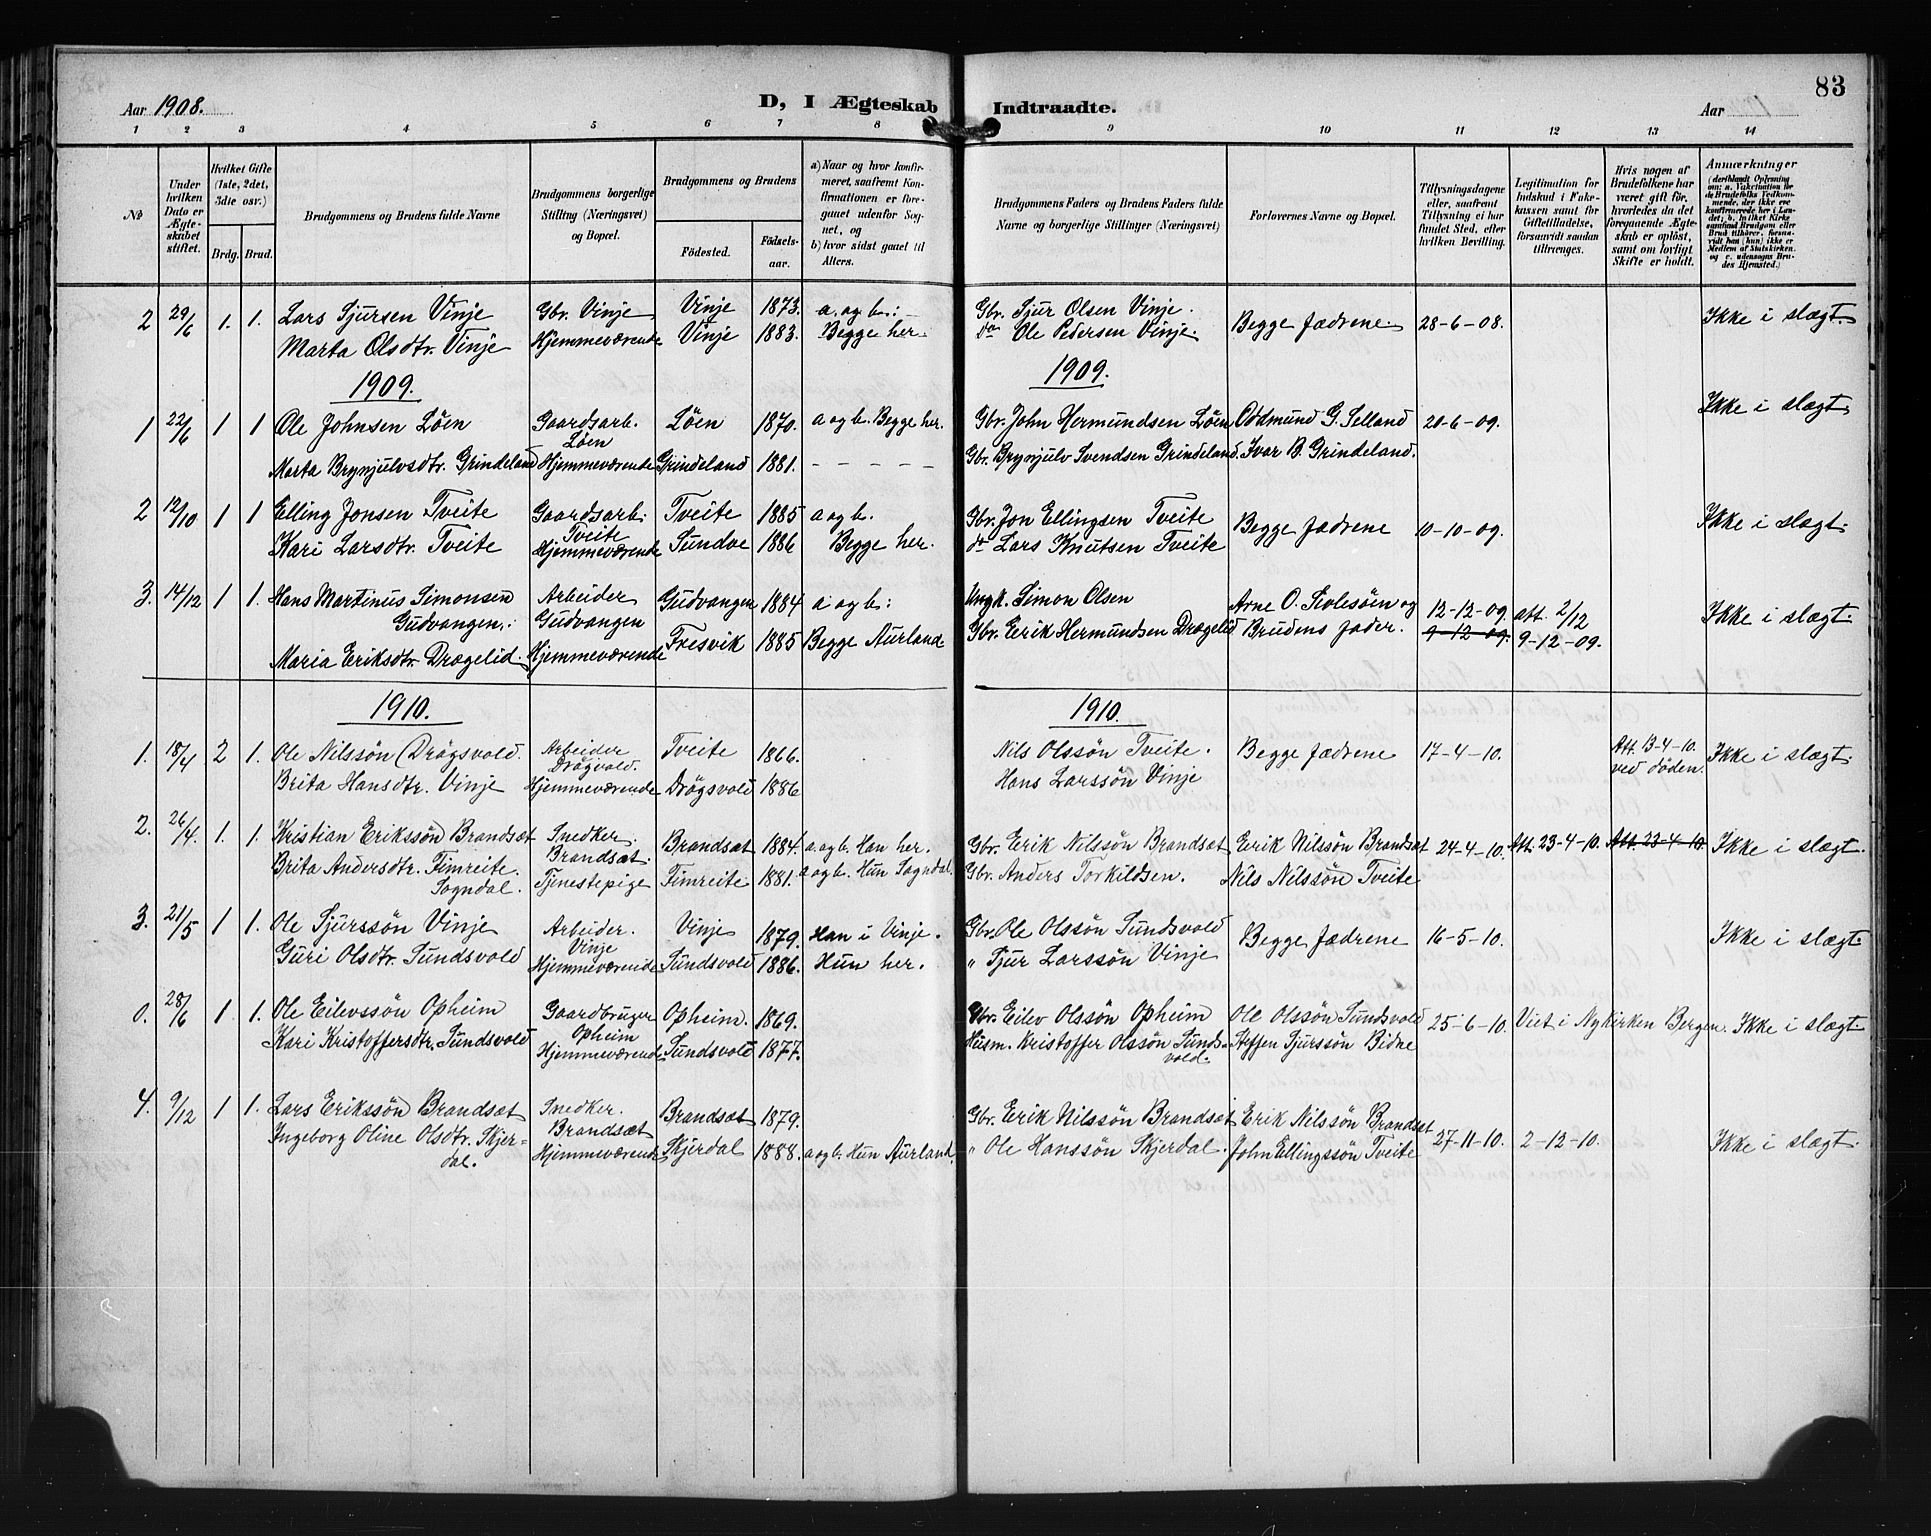 83
Aar 1908.
D, I Ægteskab Indtraadte.
Aar
1 2 3 4 5 6 7 8 9 10 11 12 13 14
№
Under hvilken Dato er Ægteskabet stiftet.
Hvilket Gifte (1ste, 2det, 3die osv.)
Brdg. Brud.
Brudgommens og Brudens fulde Navne
Brudgommens borgerlige Stilling (Næringsvei) og Bopæl.
Brudgommens og Brudens
Fødested. Fødselsaar.
a) Naar og hvor konfirmeret, saafremt Konfirmationen er foregaaet udenfor Sognet, og
b) hvor sidst gaaet til Alters.
Brudgommens Faders og Brudens Faders fulde Navne og borgerlige Stillinger (Næringsvei)
Forlovernes Navne og Bopæl.
Tillysningsdagene eller, saafremt Tillysning ei har fundet Sted, efter hvilken Bevilling.
Legitimation for Indskud i Enkekassen samt for Giftetilladelse, forsaavidt saadan tiltrænges.
Hvis nogen af Brudefolkene har været gift før, hvorledes da det foregaaende Ægteskab er opløst, samt om lovligt Skifte er holdt.
Anmærkninger
2 29/6 1. 1. Lars Sjursen Vinje Gbr. Vinje Vinje 1873. a. og b.: Gbr. Sjur Olsen Vinje. Begge Fædrene. 28-6-08. Ikke i slægt.
Marta Olsdtr. Vinje Hjemmeværende Vinje 1883. Begge her. do Ole Pedersen Vinje.
1909. 1909.
1 22/6 1 1 Ole Johnsen Løen Gaardsarb. Løen Løen 1870. a og b. Begge her. Gbr. John Hermundsen Løen Oddmund G. Selland 20-6-09. Ikke i slægt.
Marta Brynjulvsdtr. Grindeland Hjemmeværende Grindeland 1881. – – – – – Gbr. Brynjulv Svendsen Grindeland. Ivar B. Grindeland.
2 12/10 1 1 Elling Jonsen Tveite Gaardsarb. Tveite Tveite 1885 a og b. Gbr. Jon Ellingsen Tveite Begge Fædrene 10-10-09. Ikke i slægt.
Kari Larsdtr. Tveite Hjemmeværende Sundve 1886 Begge her. do Lars Knutsen Tveite
3. 14/12 1 1. Hans Martinus Simonsen Arbeider Gudvangen 1884 a og b: Ungk. Simon Olsen Arne O. Skolesøen og 12-12-09. att. 2/12 Ikke i slægt.
Gudvangen. Gudvangen Gbr. Erik Hermundsen Drægelid Brudens Fader. 9-12-09. 9-12-09.
Maria Eriksdtr. Drægelid Hjemmeværende Fresvik 1885 Begge Aurland
1910. 1910.
1. 18/4 2 1. Ole Nilssön (Drögsvold. Arbeider Drögvold. Tveite 1866. Nils Olssön Tveite. Begge Fædrene 17-4-10. Att. 13-4-10. ved döden. Ikke i slægt.
Brita Hansdtr. Vinje Hjemmeværende Drögsvold 1886 Hans Larssön Vinje
2. 26/4 1. 1. Kristian Erikssön Brandsæt Snedker. Brandsæt. Brandsæt 1884. a. og b. Han her. Gbr. Erik Nilssön Brandsæt Erik Nilssön Brandsæt 24-4-10. Att. 23-4-10. Att. 23-4-10 Ikke i slægt.
Brita Andersdtr. Fimreite. Sogndal. Tjenestepige Fimreite 1881. a og b. Hun Sogndal. Gbr. Anders Torkildsen. Nils Nilssön Tveite
3. 21/5 1 1 Ole Sjurssön Vinje Arbeider. Vinje Vinje 1879. Han i Vinje. Gbr. Ole Olssön Sundsvold Begge Fædrene 16-5-10. Ikke i slægt.
Guri Olsdtr. Sundsvold Hjemmeværende Sundsvold 1886. Hun her. " Sjur Larssön Vinje
0. 28/6 1 1. Ole Eilevssön Opheim Gaardbruger Opheim Opheim. 1869. Gbr. Eilev Olssön Opheim Ole Olssön Sundsvold 25-6-10. Viet i Nykirken Bergen. Ikke i slægt.
Kari Kristoffersdtr. Sundsvold Hjemmeværende Sundsvold 1877. Husm. Kristoffer Olssön Sundsvold. Steffen Sjurssön Bidne
4. 9/12 1 1. Lars Erikssön Brandsæt Snedker. Brandsæt Brandsæt 1879. Gbr. Erik Nilssön Brandsæt Erik Nilssön Brandsæt 27-11-10. 2-12-10. Ikke i slægt.
Ingeborg Oline Olsdtr. Skjerdal. Hjemmeværende Skjerdal 1888. a og b. Hun Aurland. " Ole Hanssön Skjerdal. John Ellingssön Tveite